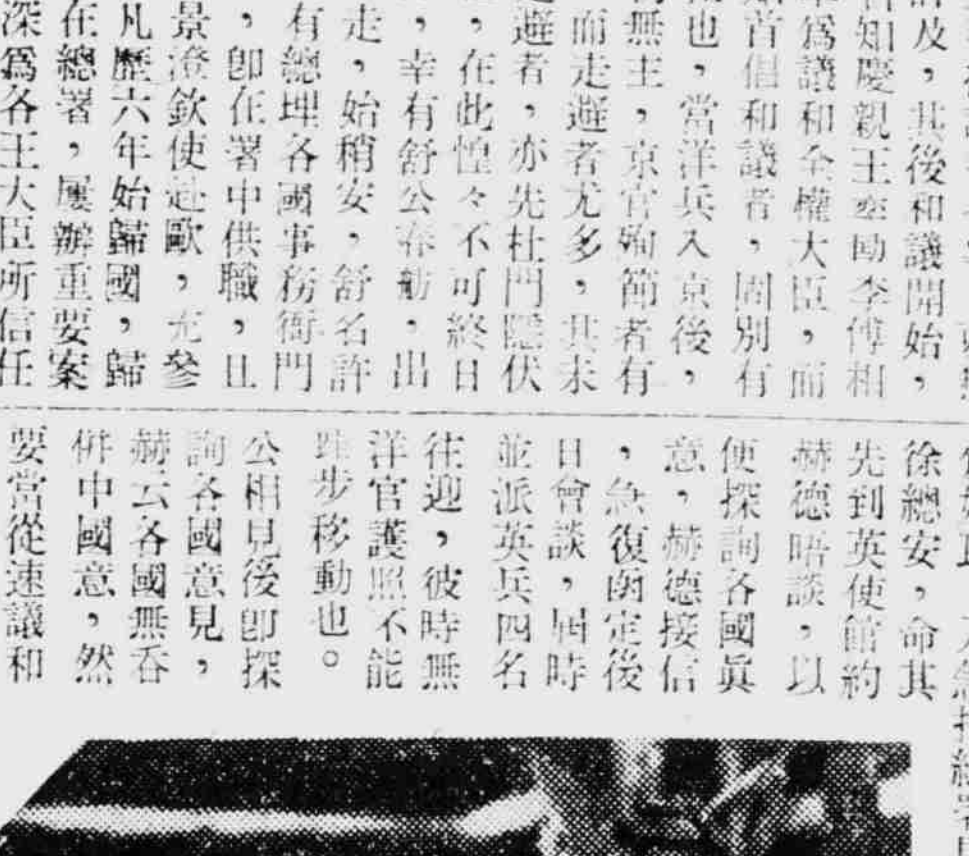 及，其後和議開始，
知慶親王奕劻李傅相
為議和全權大臣，而
首倡和議者，固別有
也，當洋兵入京後，
無主，京官殉節者有
而走避者尤多，其未
避者，亦先杜門隱伏
，在此惶々不可終日
，幸有舒公春舫，出
走，始稍安，舒名許
有總理各國事務衙門
，卽在署中供職，且
景澄欽使赴歐，充參
凡歷六年始歸國，歸
在總署，屢辦重要案
深為各王大臣所信任
徐總安，命其
先到英使館約
赫德晤談，以
便探詢各國眞
意，赫德接信
，急復函定後
日會談，屆時
並派英兵四名
往迎，彼時無
洋官護照不能
跬步移動也。
公相見後卽探
詢各國意見，
赫云各國無呑
倂中國意，然
要當從速議和